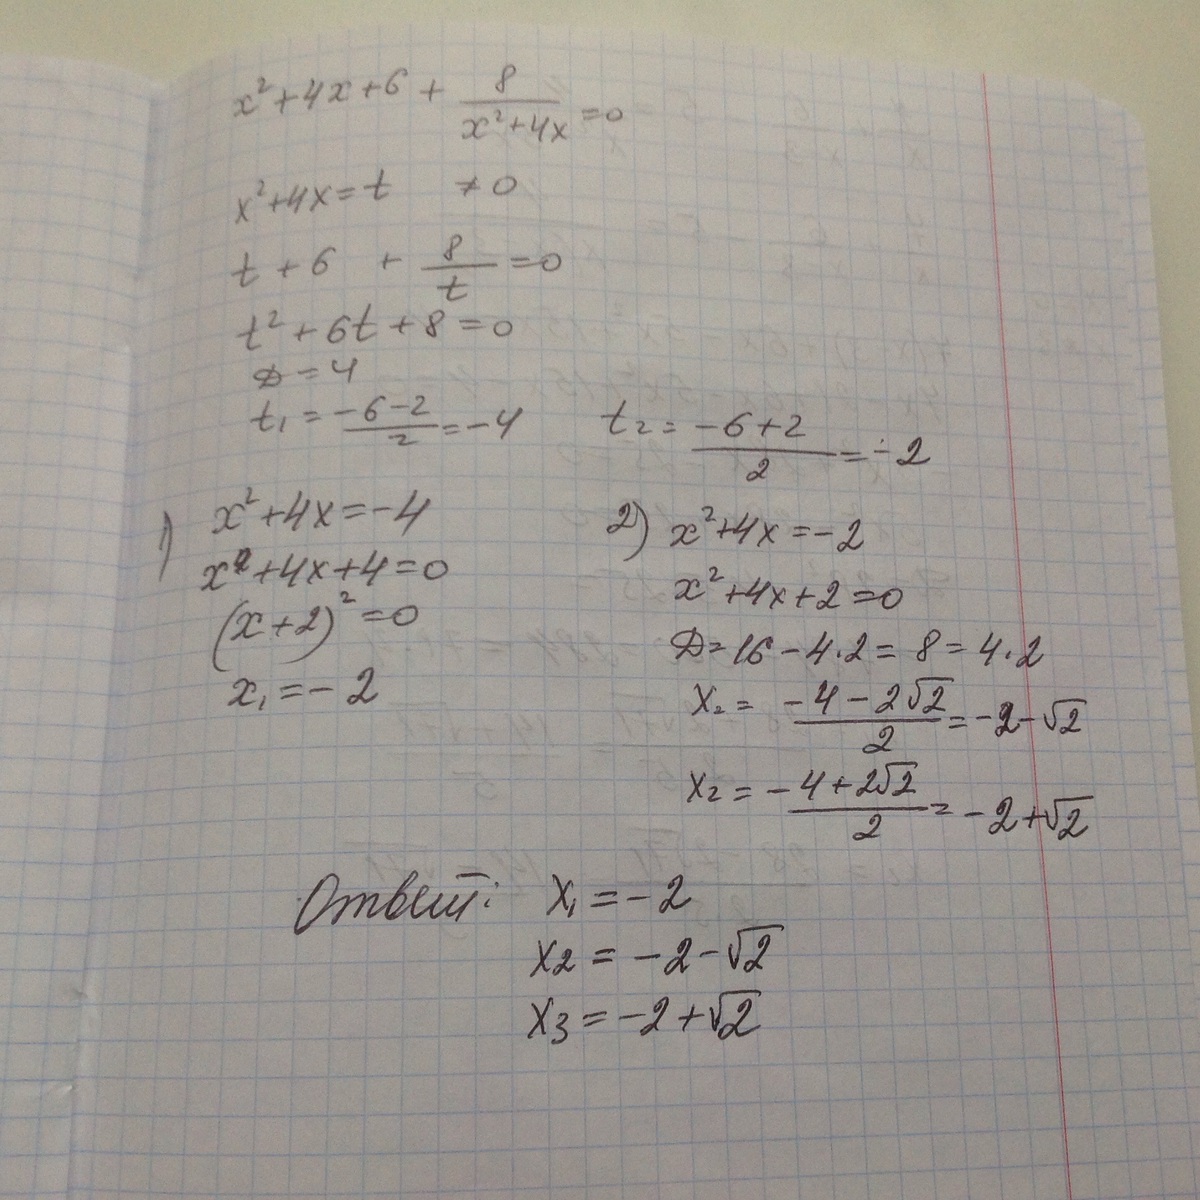 x² + 4x + 6 + 8/(x² + 4x) = 0
x² + 4x = t ≠ 0
t + 6 + 8/t = 0
t² + 6t + 8 = 0
D = 4
t₁ = (-6-2)/2 = -4
t₂ = (-6+2)/2 = -2
1) x² + 4x = -4
x² + 4x + 4 = 0
(x+2)² = 0
x₁ = -2
2) x² + 4x = -2
x² + 4x + 2 = 0
D = 16 - 4·2 = 8 = 4·2
x₂ = (-4-2√2)/2 = -2-√2
x₂ = (-4+2√2)/2 = -2+√2
Ответ: x₁ = -2
x₂ = -2-√2
x₃ = -2+√2